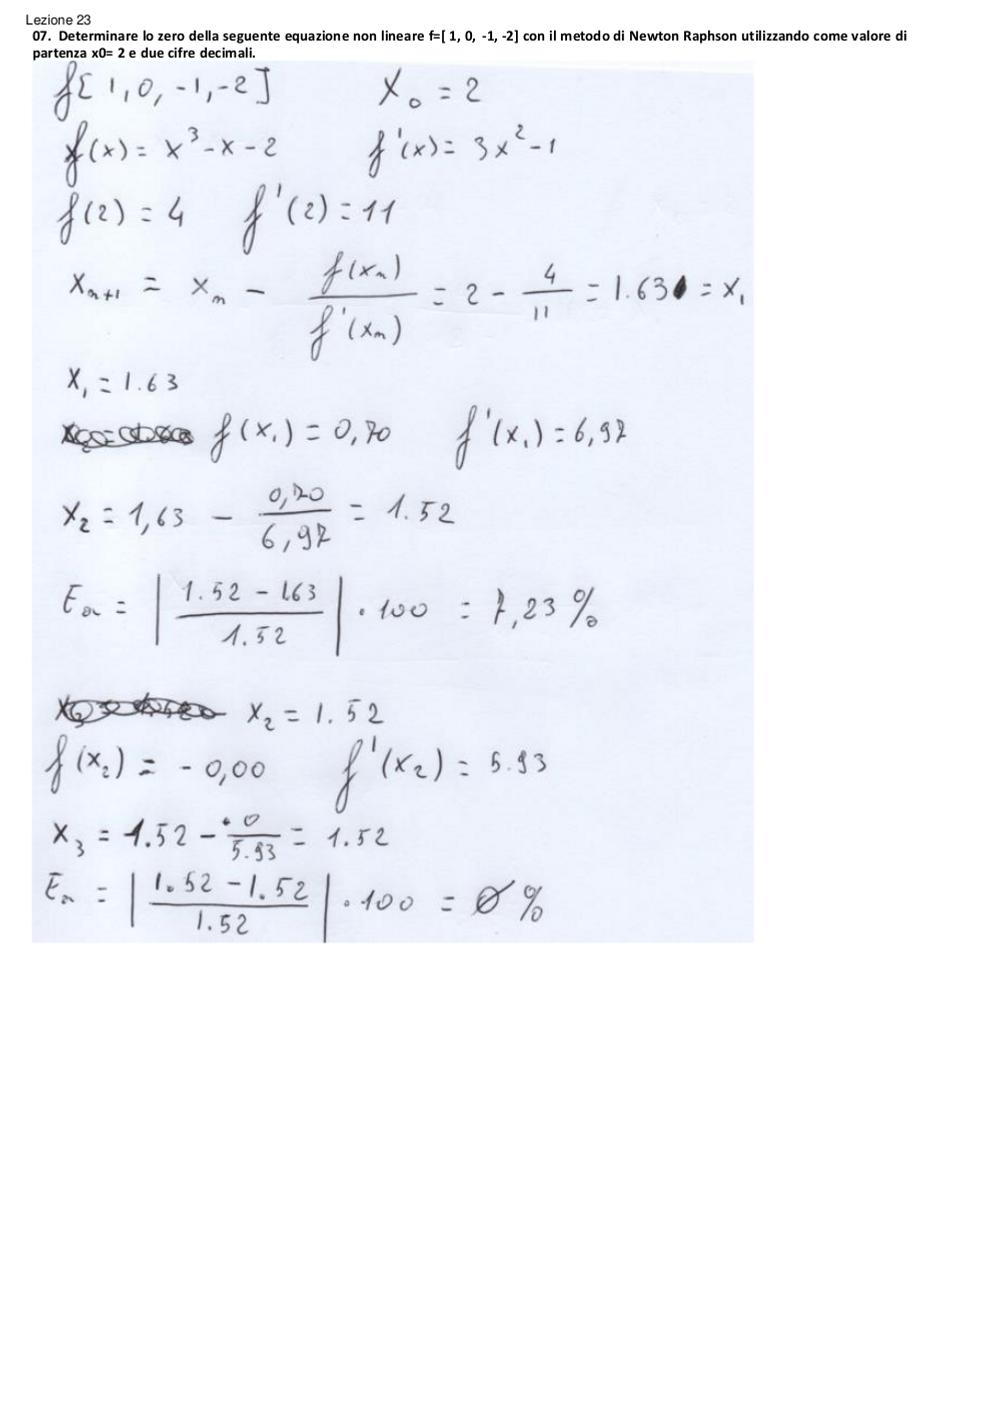 Lezione 23
07. Determinare lo zero della seguente equazione non lineare f=[ 1, 0, -1, -2] con il metodo di Newton Raphson utilizzando come valore di
partenza x0= 2 e due cifre decimali.
f[ 1, 0, -1, -2 ] X₀ = 2
f(x) = x³ - x - 2 f'(x) = 3x² - 1
f(2) = 4 f'(2) = 11
Xₙ₊₁ = Xₙ - f(xₙ) / f'(xₙ) = 2 - 4/11 = 1.63 = X₁
X₁ = 1.63
f(x₁) = 0,70 f'(x₁) = 6,97
X₂ = 1,63 - 0,70 / 6,97 = 1.52
Eₐ = | 1.52 - 1.63 / 1.52 | · 100 = 7,23 %
X₂ = 1.52
f(x₂) = - 0,00 f'(x₂) = 5.93
X₃ = 1.52 - 0 / 5.93 = 1.52
Eₐ = | 1.52 - 1.52 / 1.52 | · 100 = 0 %